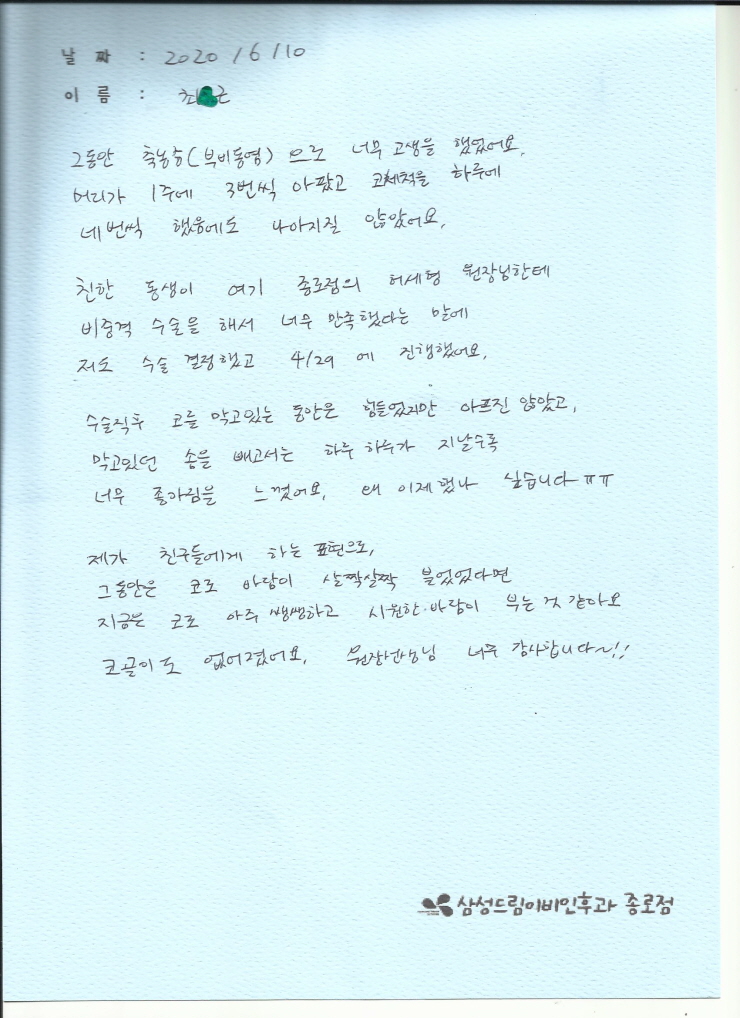 날 짜 : 2020 / 6 / 10
이 름 : 최 근
그동안 축농증(부비동염) 으로 너무 고생을 했었어요.
머리가 1주에 3번씩 아팠고 코세척을 하루에
네번씩 했음에도 나아지질 않았어요.
친한 동생이 여기 종로점의 허세형 원장님한테
비중격 수술을 해서 너무 만족했다는 말에
저도 수술 결정했고 4/29 에 진행했어요.
수술직후 코를 막고있는 동안은 힘들었지만 아프진 않았고,
막고있던 솜을 빼고서는 하루 하루가 지날수록
너무 좋아짐을 느꼈어요. 왜 이제했나 싶습니다 ㅠㅠ
제가 친구들에게 하는 표현으로,
그동안은 코로 바람이 살짝살짝 불었었다면
지금은 코로 아주 쌩쌩하고 시원한 바람이 부는 것 같아요
코골이도 없어졌어요. 원장선생님 너무 감사합니다~!!
삼성드림이비인후과 종로점